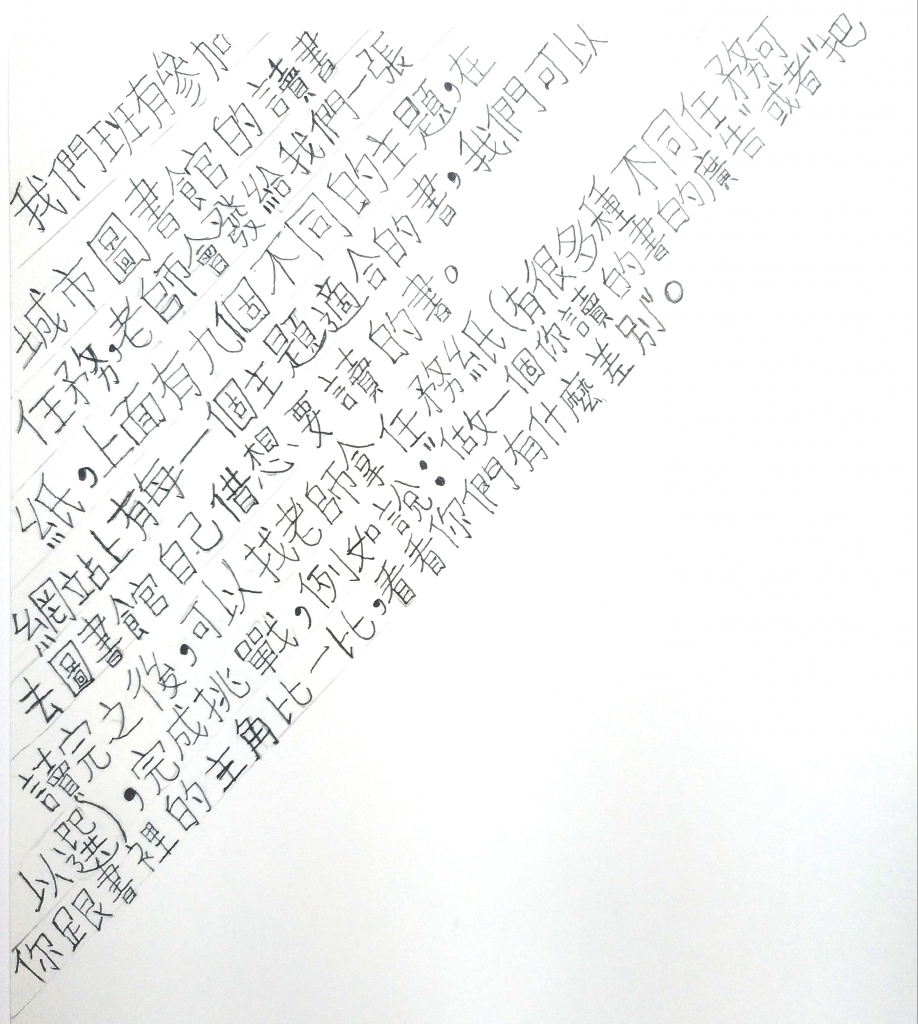 我們班有參加
城市圖書館的讀書
任務,老師會發給我們一張
紙,上面有九個不同的主題,在
網站上有每一個主題適合的書,我們可以
去圖書館自己借想要讀的書。
讀完之後,可以找老師拿任務紙(有很多種不同任務可
以選),完成挑戰,例如說:"做一個你讀的書的廣告"或者"把
你跟書裡的主角比一比,看看你們有什麼差別"。